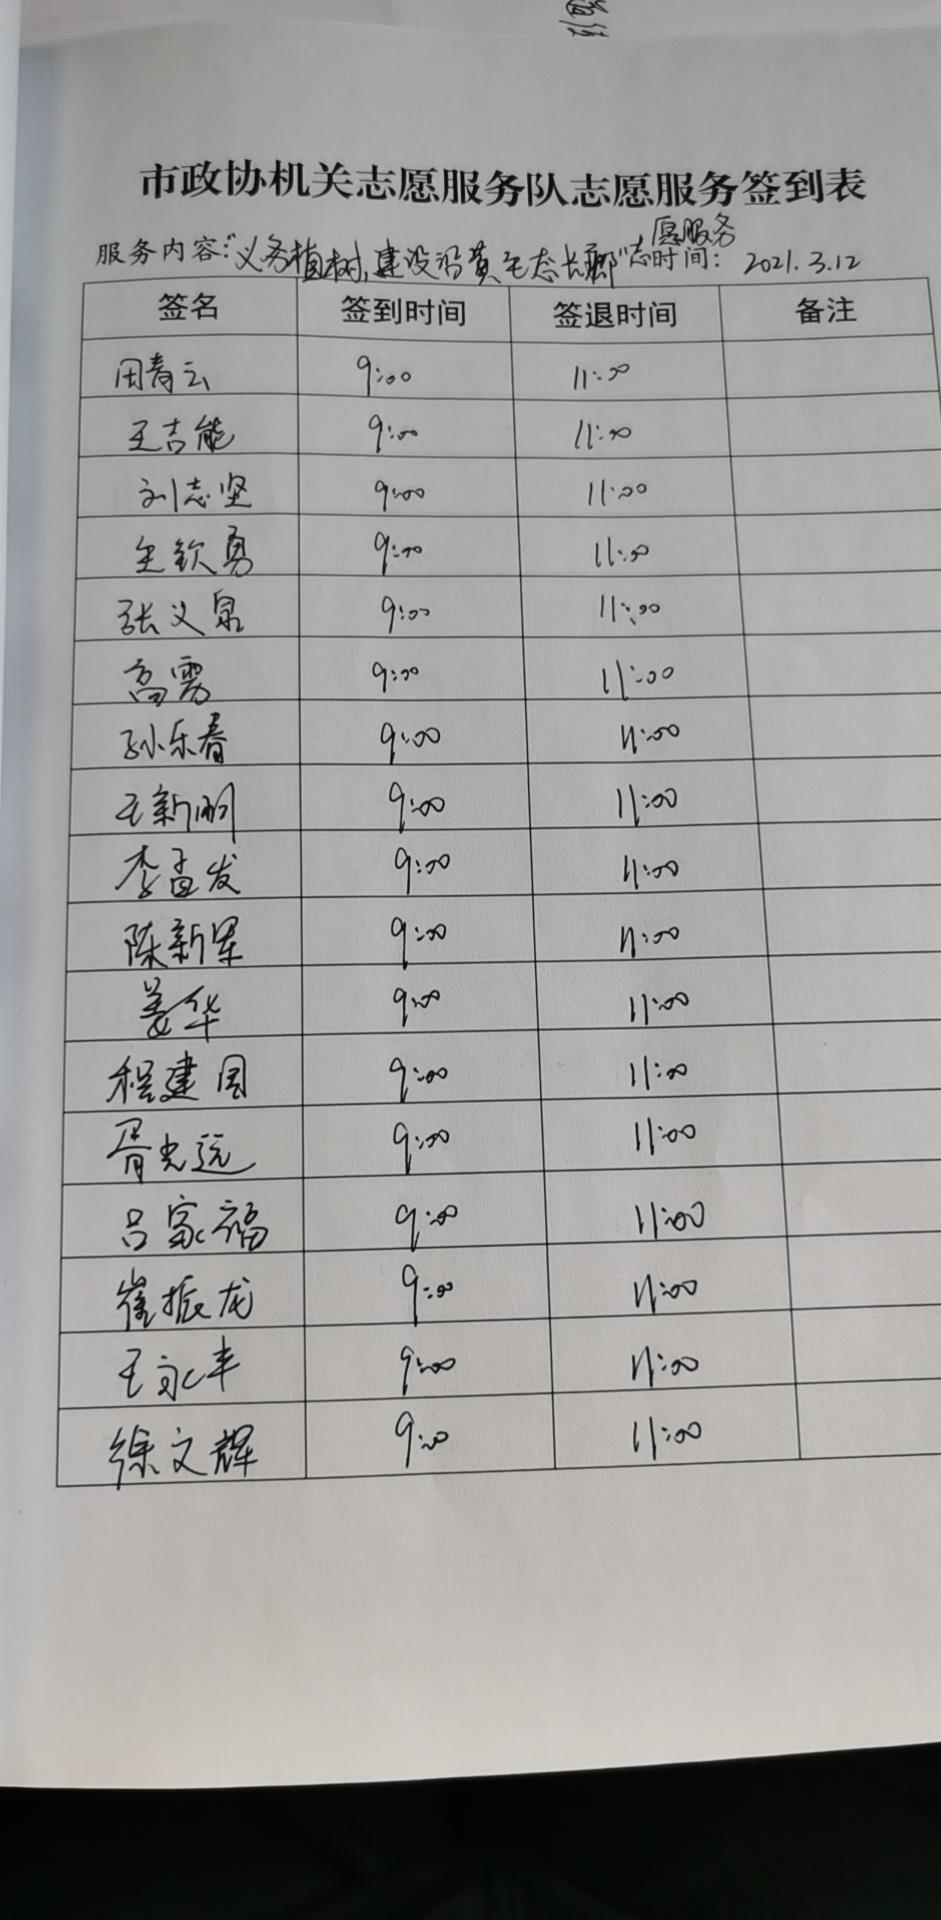 市政协机关志愿服务队志愿服务签到表
服务内容:“义务植树,建设沿黄生态长廊”志愿服务 时间: 2021.3.12
签名 签到时间 签退时间 备注
田青云 9:00 11:00
王吉能 9:00 11:00
刘志坚 9:00 11:00
钦勇 9:00 11:00
张义泉 9:00 11:00
高雳 9:00 11:00
孙乐春 9:00 11:00
王新刚 9:00 11:00
李孟发 9:00 11:00
陈新军 9:00 11:00
姜华 9:00 11:00
程建国 9:00 11:00
胥光远 9:00 11:00
吕家福 9:00 11:00
崔振龙 9:00 11:00
王永丰 9:00 11:00
徐文辉 9:00 11:00